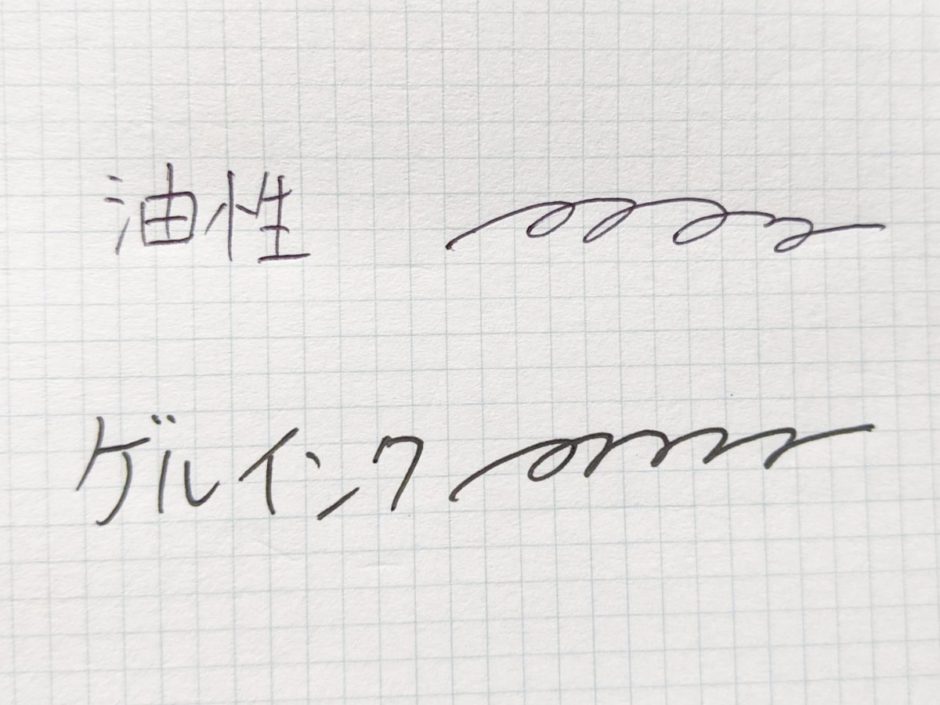 油性
ゲルインク